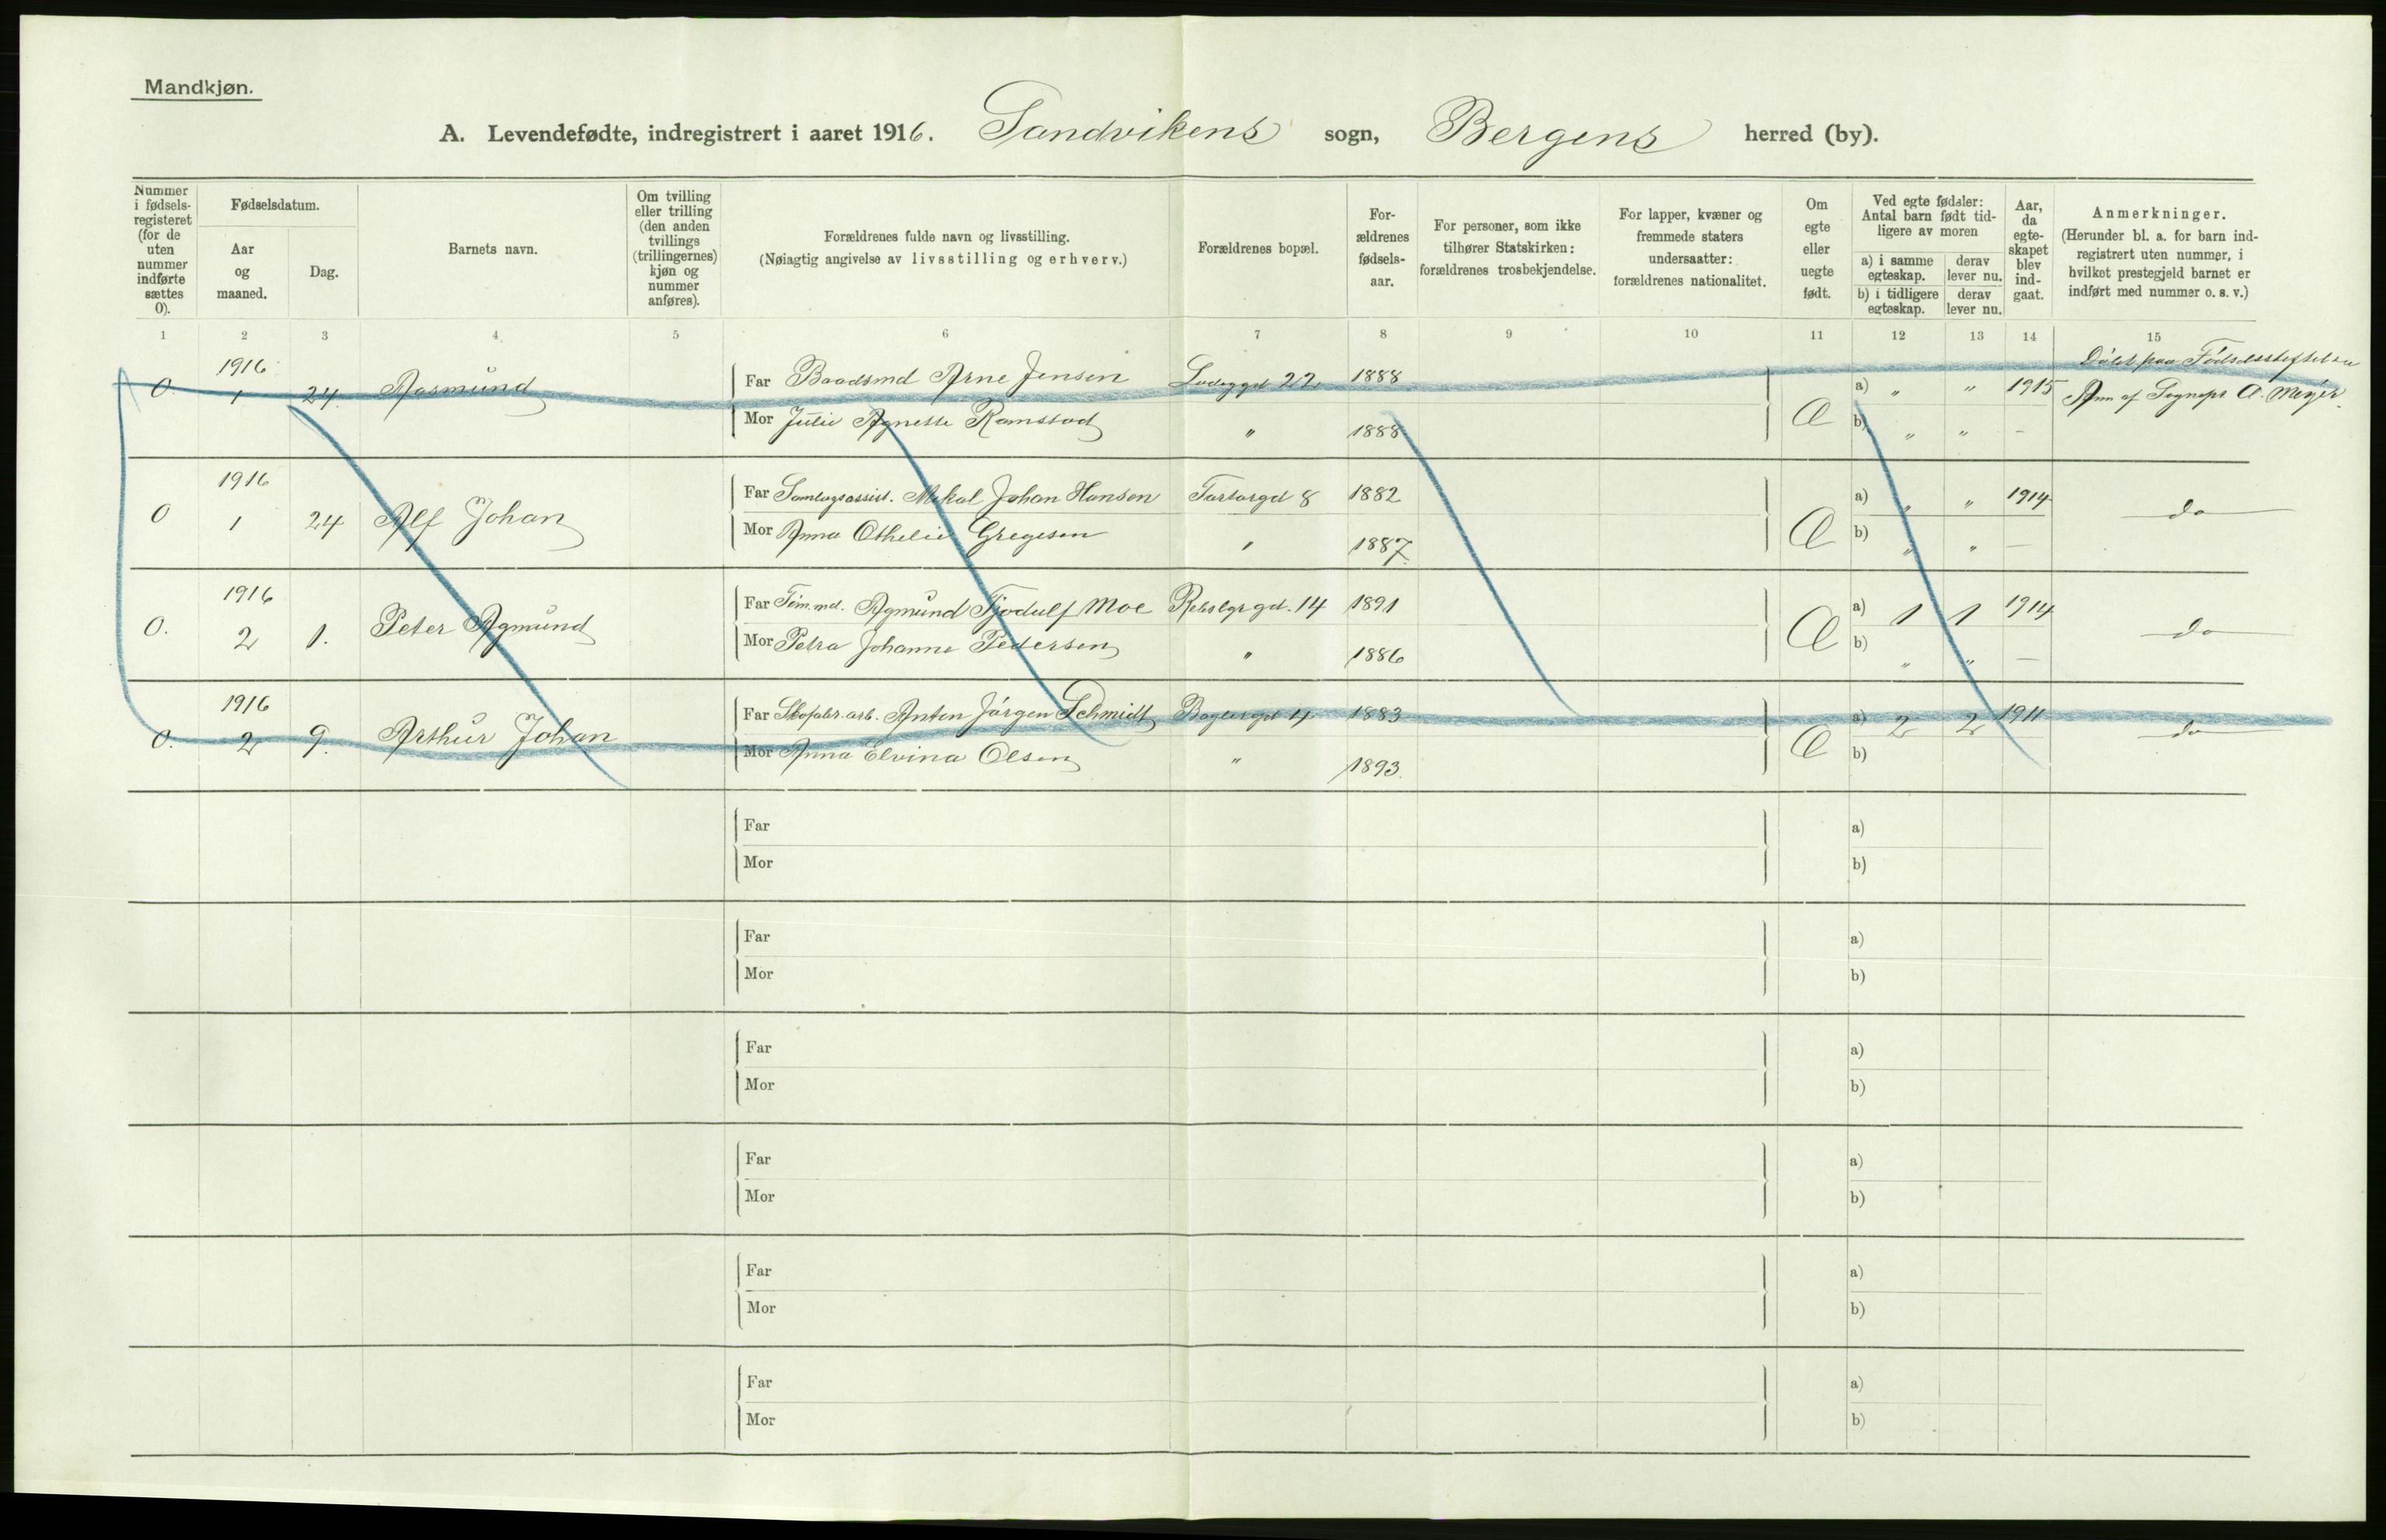 Mandkjøn.
A. Levendefødte, indregistrert i aaret 1916. Sandvikens sogn, Bergens herred (by).
Nummer i fødsels-registeret (for de uten nummer indførte sættes 0).
Fødselsdatum.
Aar og maaned.
Dag.
Barnets navn.
Om tvilling eller trilling (den anden tvillings (trillingernes) kjøn og nummer anføres).
Forældrenes fulde navn og livsstilling.
(Nøiagtig angivelse av livsstilling og erhverv.)
Forældrenes bopæl.
For-ældrenes fødsels-aar.
For personer, som ikke tilhører Statskirken: forældrenes trosbekjendelse.
For lapper, kvæner og fremmede staters undersaatter: forældrenes nationalitet.
Om egte eller uegte født.
Ved egte fødsler: Antal barn født tid-ligere av moren
a) i samme egteskap.
derav lever nu.
b) i tidligere egteskap.
derav lever nu.
Aar, da egte-skapet blev ind-gaat.
Anmerkninger.
(Herunder bl. a. for barn ind-registrert uten nummer, i hvilket prestegjeld barnet er indført med nummer o. s. v.)
1 2 3 4 5 6 7 8 9 10 11 12 13 14 15
1916
0. 1 24. Rasmund
Far Baadsmd Arne Jensen 22 1888 a) " " 1915
Døbt paa Fødselsstiftelsen
Mor Julie Agnette Ramstad " 1888 Æ b) " " –
Anm af Sognepr A. Meyer.
1916
0 1 24 Alf Johan
Far Samlagsassist. Mikal Johan Hansen Tartargd 8 1882 a) " " 1914
Mor Anna Othelie Gregesen " 1887 Æ b) " " –
do
1916
0. 2 1. Peter Agmund
Far Tøm.md. Agmund Tjodulf Moe Rebslgr gd. 14 1891 a) 1 1 1914
Mor Petra Johanne Pedersen " 1886 Æ b) " " –
do
1916
0. 2 9. Arthur Johan
Far Skofabr. arb. Anton Jørgen Schmidt Baglergd 4 1883 a) 2 2 1911
Mor Anna Elvina Olsen " 1893. Æ b)
do
Far a)
Mor b)
Far a)
Mor b)
Far a)
Mor b)
Far a)
Mor b)
Far a)
Mor b)
Far a)
Mor b)